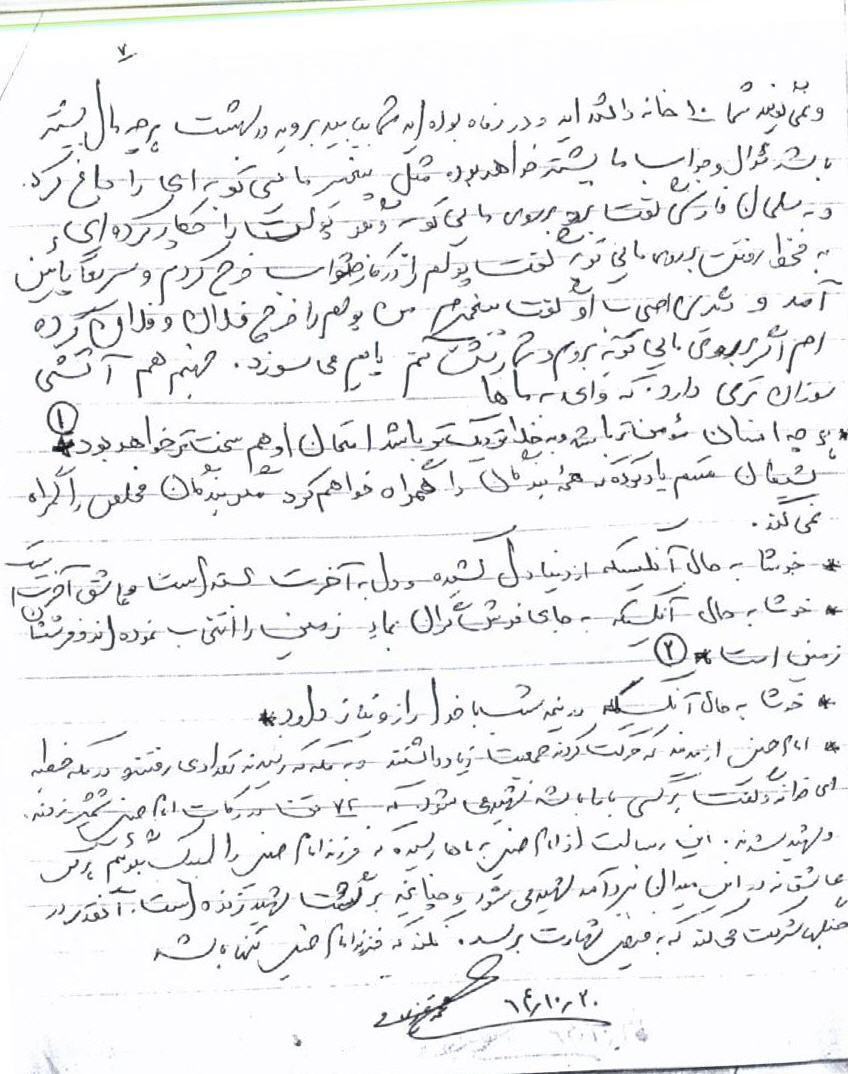 ۷
و نمی گویند شما ۱۰ خانه داشته اید و در رفاه بوده اید شما بیایید بروید در بهشت هر چه مال بیشتر
باشد سؤال و جواب ما بیشتر خواهد بود مثل پیغمبر ماهی تابه ای را داغ کرد.
و به سلمان فارسی گفت برو بر روی ماهی تابه و بگو پولت را چکار کرده ای
به محض رفتن بر روی ماهی تابه گفت پولم را در کار ثواب خرج کردم و سریعاً پایین
آمد و گفت پیغمبر من پولم را خرج فلان و فلان کرده
ام اگر بر روی ماهی تابه بروم و شمارش کنم پایم می سوزد. جهنم هم آتشی
سوزان تری دارد. که وای به ماها
* هر چه انسان مؤمن تر باشد و به خدا نزدیک تر باشد امتحان او هم سخت تر خواهد بود * ①
شیطان قسم یاد کرده که همۀ بندگان را گمراه خواهم کرد مگر بندگان مخلص را گمراه
نمی کند.
* خوشا به حال آنکسیکه از دنیا دل کشیده و دل به آخرت بسته است و عاشق آخرت است
* خوشا به حال آنکسیکه به جای فرش گران بهاء زمین را انتخاب نموده اند و فرششان
زمین است * ②
* خوشا به حال آنکسیکه در نیمه شب با خدا راز و نیاز دارد *
* امام حسین از مدینه که حرکت کردند جمعیت زیاد داشتند و به مکه که رسیدند تعدادی رفتند و در مکه خطبه
ای خواند و گفت هر کسی با ما باشد شهید می شود که ۷۲ تن در رکاب امام حسین شمشیر زدند.
و شهید شدند. این رسالت از امام حسین به ماها رسیده که فرزند امام حسین را لبیک بگوئیم هر کس
عاشقانه در این میدان نبرد آمد شهید می شود و چنانچه برگشت شهید زنده است. آنقدر در
جنگها شرکت می کند که به فیض شهادت برسد. نکند که فرزند امام حسین تنها باشد
۶۴/۱۰/۲۰